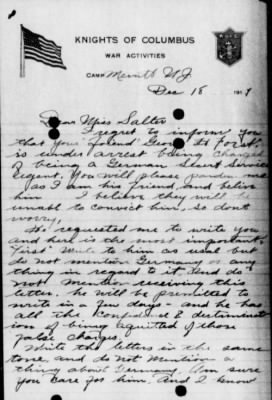 KNIGHTS OF COLUMBUS
WAR ACTIVITIES
CAMP Merritt N.J.
Dec 18 1917
Dear Miss Salter
I regret to inform you
that your friend George
is under arrest being charged
of being a German Secret Service
Agent. You will please pardon me
as I am his friend, and believe
him I believe they will be
unable to convict him, so dont
worry,
He requested me to write you
and here is the most important
First. Write to him as usual but
do not mention Germany or any
thing in regard to it. And do
not mention receiving this
letter. he will be permitted to
write in a few days and he has
all the Confidence & determinat
ion of being aquitted of those
false charges.
Write the letters in the same
tone, and do not Mention a
thing about Germany. Am sure
you Care for him. And I know